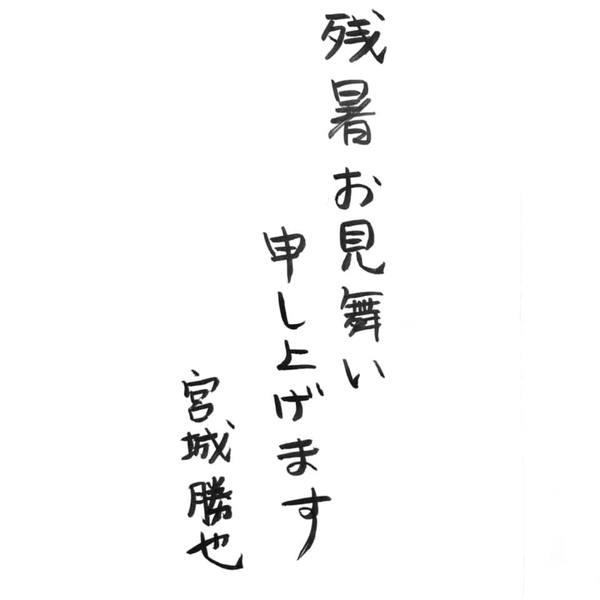 残暑お見舞い
申し上げます
宮城勝也